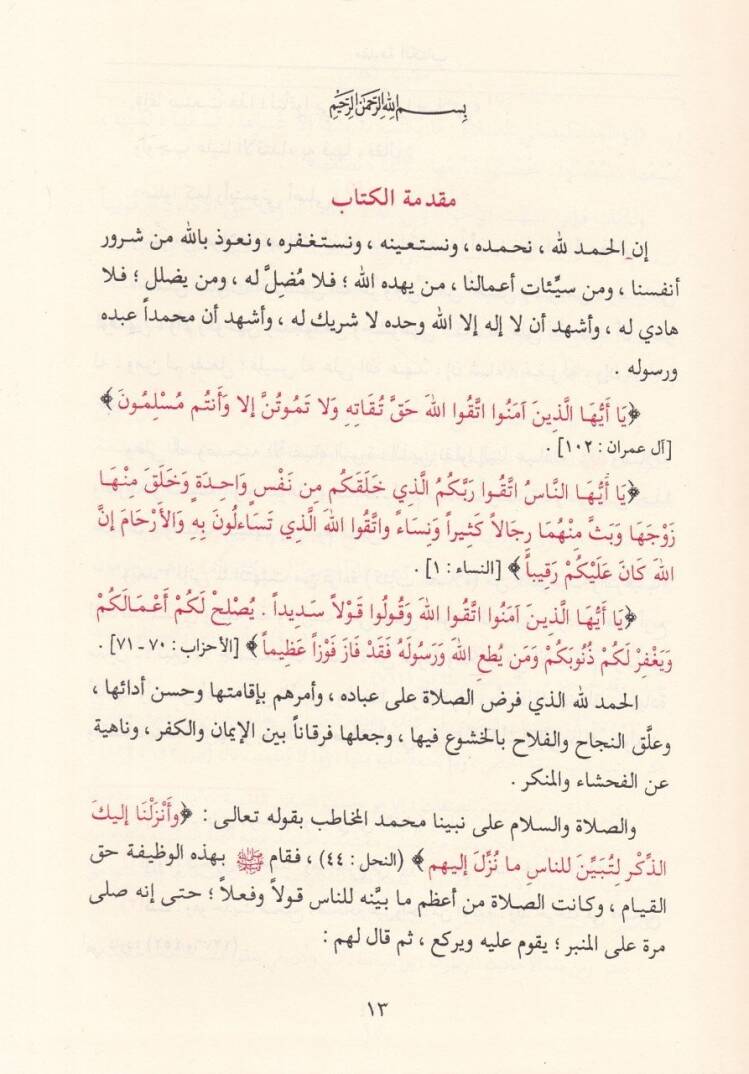 بسم الله الرحمن الرحيم
مقدمة الكتاب
إن الحمد لله ، نحمده ، ونستعينه ، ونستغفره ، ونعوذ بالله من شرور
أنفسنا ، ومن سيِّئات أعمالنا ، من يهده الله ؛ فلا مُضِلَّ له ، ومن يضلل ؛ فلا
هادي له ، وأشهد أن لا إله إلا الله وحده لا شريك له ، وأشهد أن محمداً عبده
ورسوله .
﴿يَا أَيُّهَا الَّذِينَ آمَنُوا اتَّقُوا اللهَ حَقَّ تُقَاتِهِ وَلا تَمُوتُنَّ إلا وَأَنتُم مُسْلِمُونَ﴾
[آل عمران : ١٠٢] .
﴿يَا أَيُّهَا النَّاسُ اتَّقُوا رَبَّكُمُ الَّذِي خَلَقَكُم مِن نَفْسٍ وَاحِدَةٍ وَخَلَقَ مِنْهَا
زَوْجَهَا وَبَثَّ مِنْهُمَا رِجَالاً كَثِيراً وَنِسَاءً واتَّقُوا اللهَ الَّذِي تَسَاءلُونَ بِهِ وَالأَرْحَامَ إنَّ
اللهَ كَانَ عَلَيْكُمْ رَقِيباً﴾ [النساء : ١] .
﴿يَا أَيُّهَا الَّذِينَ آمَنُوا اتَّقُوا اللهَ وَقُولُوا قَوْلاً سَدِيداً . يُصْلِحْ لَكُمْ أَعْمَالَكُمْ
وَيَغْفِرْ لَكُمْ ذُنُوبَكُمْ وَمَن يُطعِ اللهَ وَرَسُولَهُ فَقَدْ فَازَ فَوْزاً عَظِيماً﴾ [الأحزاب : ٧٠ ـ ٧١] .
الحمد لله الذي فرض الصلاة على عباده ، وأمرهم بإقامتها وحسن أدائها ،
وعلَّق النجاح والفلاح بالخشوع فيها ، وجعلها فرقاناً بين الإيمان والكفر ، وناهية
عن الفحشاء والمنكر .
والصلاة والسلام على نبينا محمد المخاطب بقوله تعالى : ﴿وأَنْزَلْنَا إليكَ
الذِّكْر لِتُبَيِّنَ للناسِ ما نُزِّلَ إليهم﴾ (النحل : ٤٤) ، فقام ﷺ بهذه الوظيفة حق
القيام ، وكانت الصلاة من أعظم ما بيَّنه للناس قولاً وفعلاً ؛ حتى إنه صلى
مرة على المنبر ؛ يقوم عليه ويركع ، ثم قال لهم :
١٣